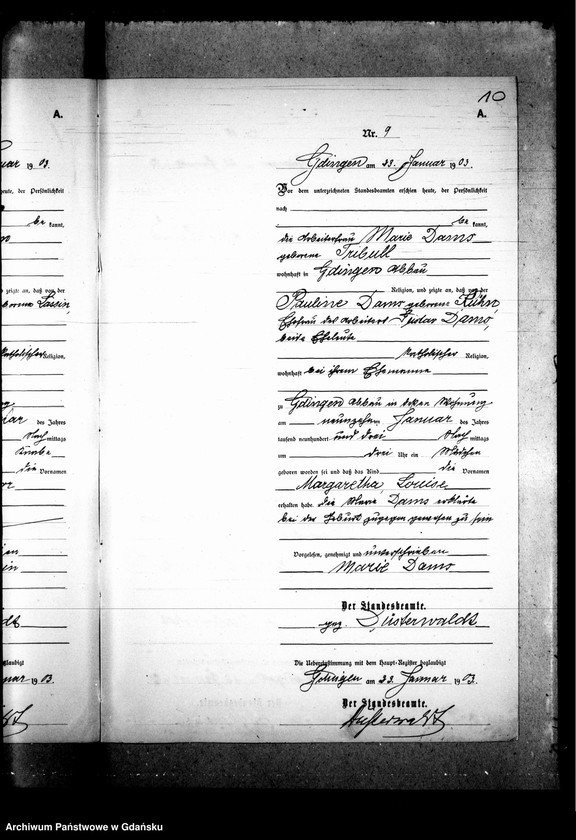 10
A.
A.
Nr. 9
uar 1903.
Gdingen am 23. Januar 1903.
eute, der Persönlichkeit
Vor dem unterzeichneten Standesbeamten erschien heute, der Persönlichkeit
nach
be kannt,
be kannt,
die Arbeiterfrau Marie Dams
geborene Tribull
wohnhaft in Gdingen Abbau
zeigte an, daß von der
Religion, und zeigte an, daß von der
Pauline Dams geborene Kühn,
Ehefrau des Arbeiters Gustav Dams,
beide Eheleute
katholischer Religion,
katholischer Religion,
wohnhaft bei ihrem Ehemanne
zu Gdingen Abbau in dessen Wohnung
am neunzehn Januar des Jahres
des Jahres
tausend neunhundert und drei Nach mittags
Nach mittags
um drei Uhr ein Mädchen
Knabe
geboren worden sei und daß das Kind die Vornamen
die Vornamen
Margaretha Louise
erhalten habe. Die Marie Dams erklärte
bei der Geburt zugegen gewesen zu sein
Vorgelesen, genehmigt und unterschrieben
Marie Dams
Der Standesbeamte.
gez. Düsterwaldt
Die Uebereinstimmung mit dem Haupt-Register beglaubigt
Gdingen am 23. Januar 1903.
nuar 1903.
Der Standesbeamte.
Düsterwaldt
Archiwum Państwowe w Gdańsku